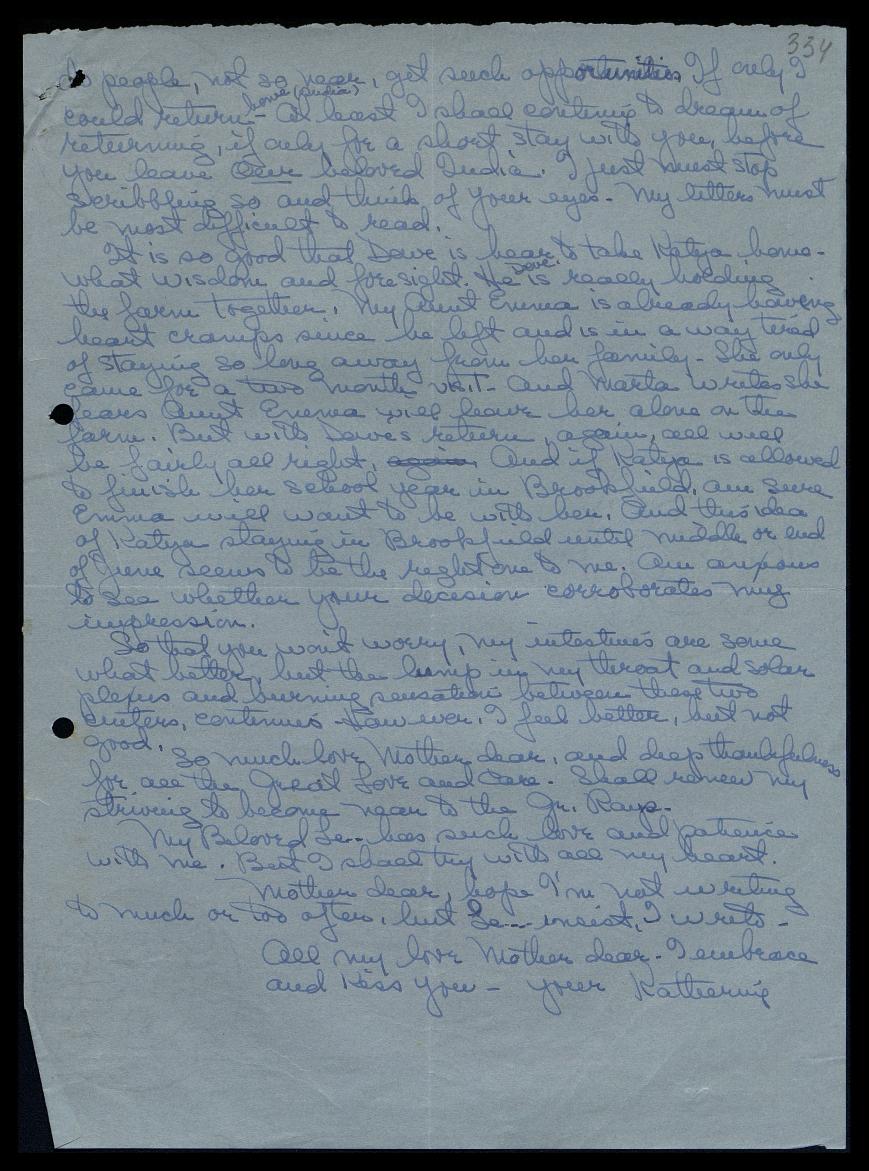 334
do people, not so near, get such opportunities. If only I
home (India)
could return – At least I shall continue to dream of
returning, if only for a short stay with you, before
you leave Our beloved India. I just must stop
scribbling so and think of your eyes – My letters must
be most difficult to read.
It is so good that Dave is near to take Katya home –
what wisdom and foresight. He is really holding
Dave
the farm together. My Aunt Emma is already having
heart cramps since he left and is in a way tired
of staying so long away from her family – She only
came for a two month visit – and Marta writes she
fears Aunt Emma will leave her alone on the
farm. But with Dave's return, again, all will
be fairly all right, again. And if Katya is allowed
to finish her school year in Brookfield, am sure
Emma will want to be with her. And this idea
of Katya staying in Brookfield until middle or end
of June seems to be the right one to me. Am anxious
to see whether your decision corroborates my
impression.
So that you won't worry, my intestines are some
what better, but the lump in my throat and solar
plexus and burning sensation between these two
centers, continues – However, I feel better, but not
good.
So much love Mother dear, and deep thankfulness
for all the Great Love and Care – Shall renew my
striving to become near to the Gr. Rays –
My Beloved Se-- has such love and patience
with me. But I shall try with all my heart.
Mother dear, hope I'm not writing
to much or too often, but Se--- insist, I write –
All my love Mother dear – I embrace
and kiss you – your Katherine